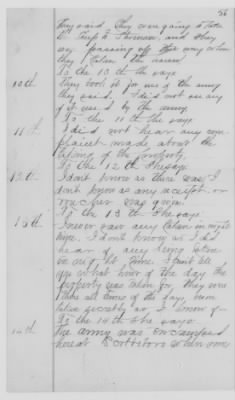 56
They said, they were going to take
it
passing off this way when
they taken the
To the 10 th she says
10th They took it for use of the army
they said, I did not see any
of it used by the army.
To the 11 th she says
11th I did not hear any com-
plaint made about the
taking of the property.
To the 12th She says
12th I dont know as there was, I
dont know as any receipt or
voucher was given.
To the 13 th She says.
13th I never saw any taken in night
time. I dont know as I did
hear of any being taken
in night time. I cant tell
you what hour of the day the
property was taken for, they were
there all times of the day,
as I know of
To the 14th She says
14th The army was encamped
here at when some